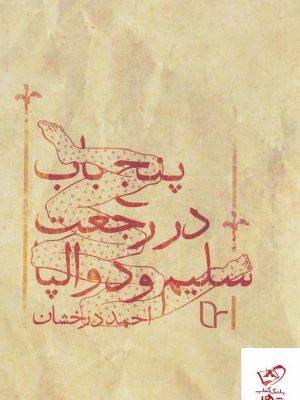 پنج باب
در رجعت
سلیم و دوالپا
احمد درخشان
بانک کتاب